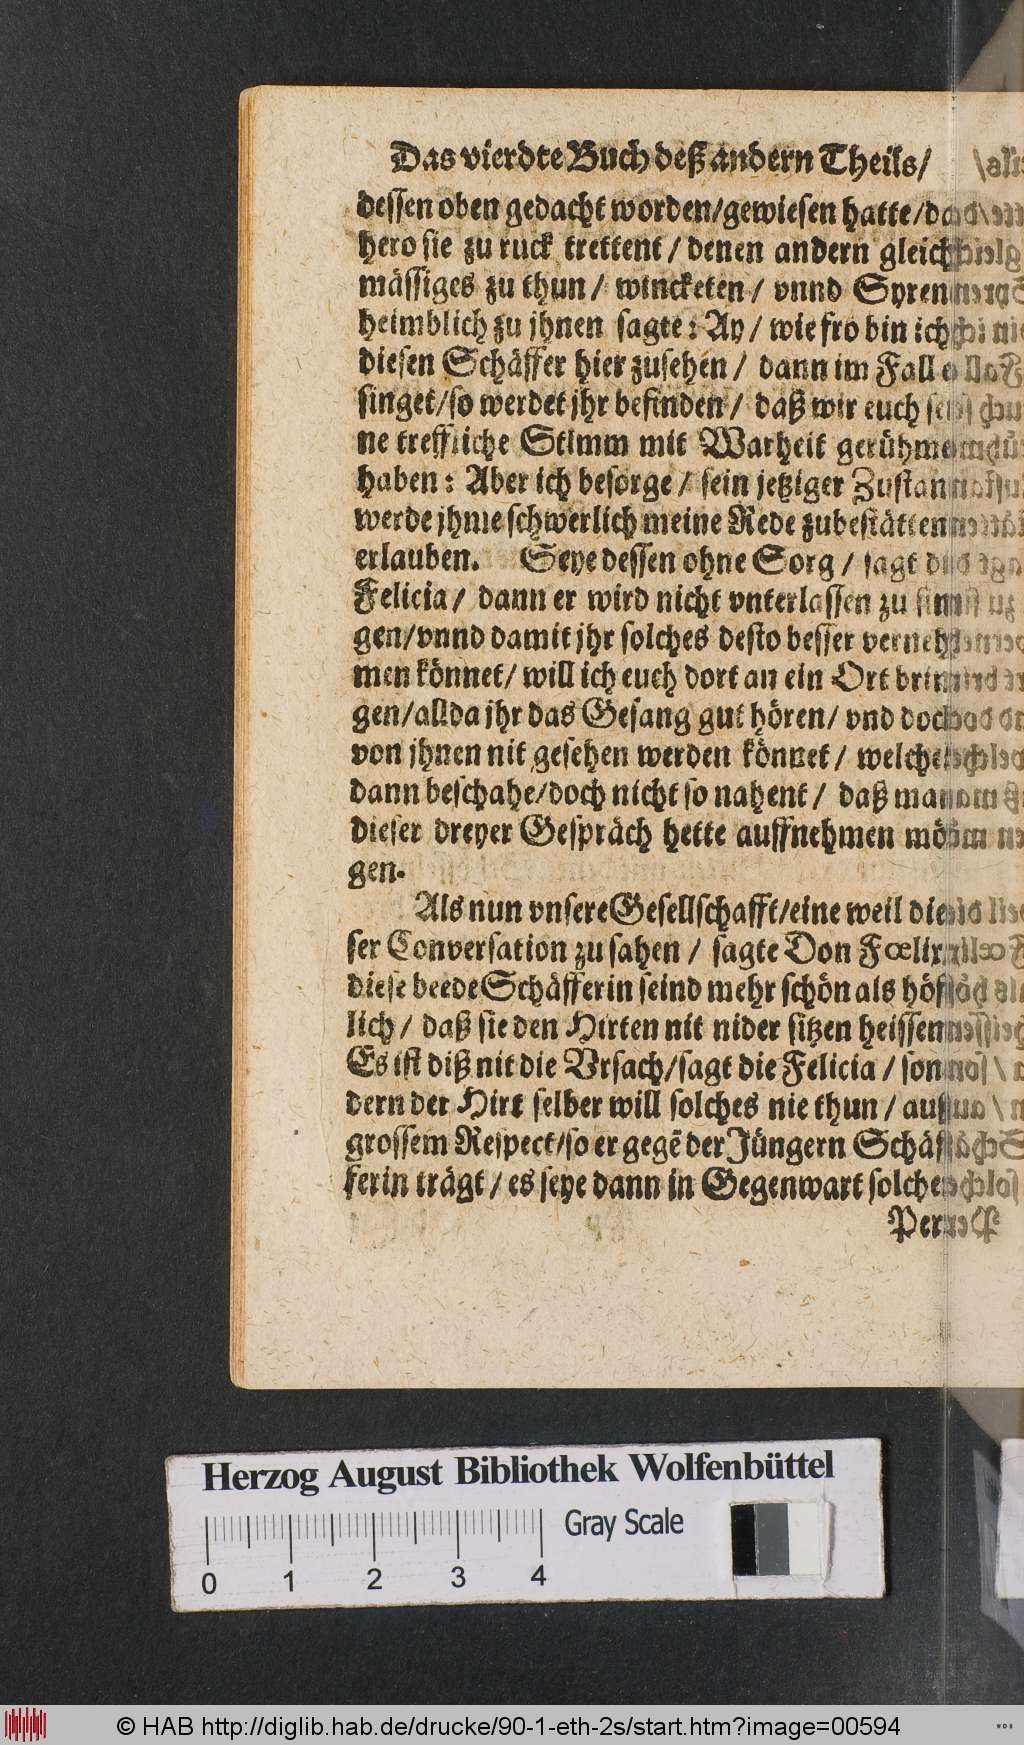 Das vierdte Buch deß andern Theils/
dessen oben gedacht worden/gewiesen hatte/da
hero sie zu ruck trettent/denen andern gleich
mässiges zu thun/ wincketen/ vnnd Syren
heimblich zu jhnen sagte: Ay/ wie fro bin ich
diesen Schäffer hier zusehen/ dann im Fall
singet/so werdet jhr befinden/ daß wir euch
ne treffliche Stimm mit Warheit gerühm
haben: Aber ich besorge/ sein jetziger Zustan
werde jhme schwerlich meine Rede zubestätten
erlauben. Seye dessen ohne Sorg/ sagt
Felicia/ dann er wird nicht vnterlassen zu
gen/vnnd damit jhr solches desto besser verneh
men könnet/ will ich euch dort an ein Ort brin
gen/allda jhr das Gesang gut hören/ vnd doch
von jhnen nit gesehen werden könnet/ welche
dann beschahe/doch nicht so nahent/ daß man
dieser dreyer Gespräch hette auffnehmen mö
gen.
Als nun vnsere Gesellschafft/eine weil die
ser Conversation zu sahen/ sagte Don Fœlix
diese beede Schäfferin seind mehr schön als höf
lich/ daß sie den Hirten nit nider sitzen heissen
Es ist diß nit die Vrsach/sagt die Felicia/ son
dern der Hirt selber will solches nie thun/ auß
grossem Respect/so er gegē der Jüngern Schäf
ferin trägt/ es seye dann in Gegenwart solche
Per
Herzog August Bibliothek Wolfenbüttel
Gray Scale
0 1 2 3 4
© HAB http://diglib.hab.de/drucke/90-1-eth-2s/start.htm?image=00594